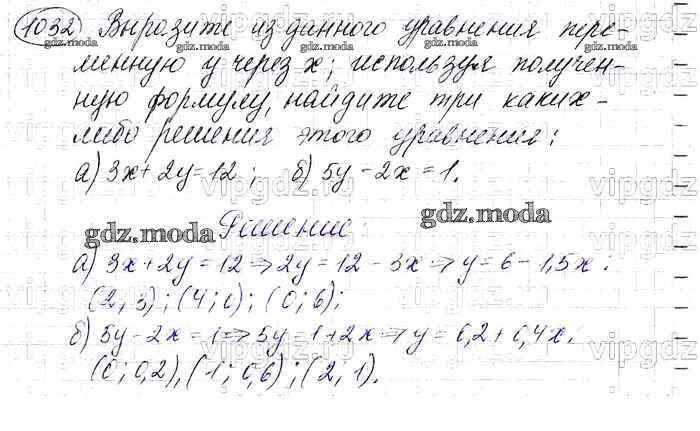 1032 Выразите из данного уравнения пере-
менную y через x; используя получен-
ную формулу, найдите три каких-
либо решения этого уравнения:
а) 3x + 2y = 12; б) 5y - 2x = 1.
Решение:
а) 3x + 2y = 12 ⇒ 2y = 12 - 3x ⇒ y = 6 - 1,5x:
(2; 3); (4; 0); (0; 6);
б) 5y - 2x = 1 ⇒ 5y = 1 + 2x ⇒ y = 0,2 + 0,4x:
(0; 0,2), (1; 0,6); (2; 1).
gdz.moda gdz.moda gdz.moda gdz.moda
gdz.moda
gdz.moda
vipgdz
vipgdz.ru